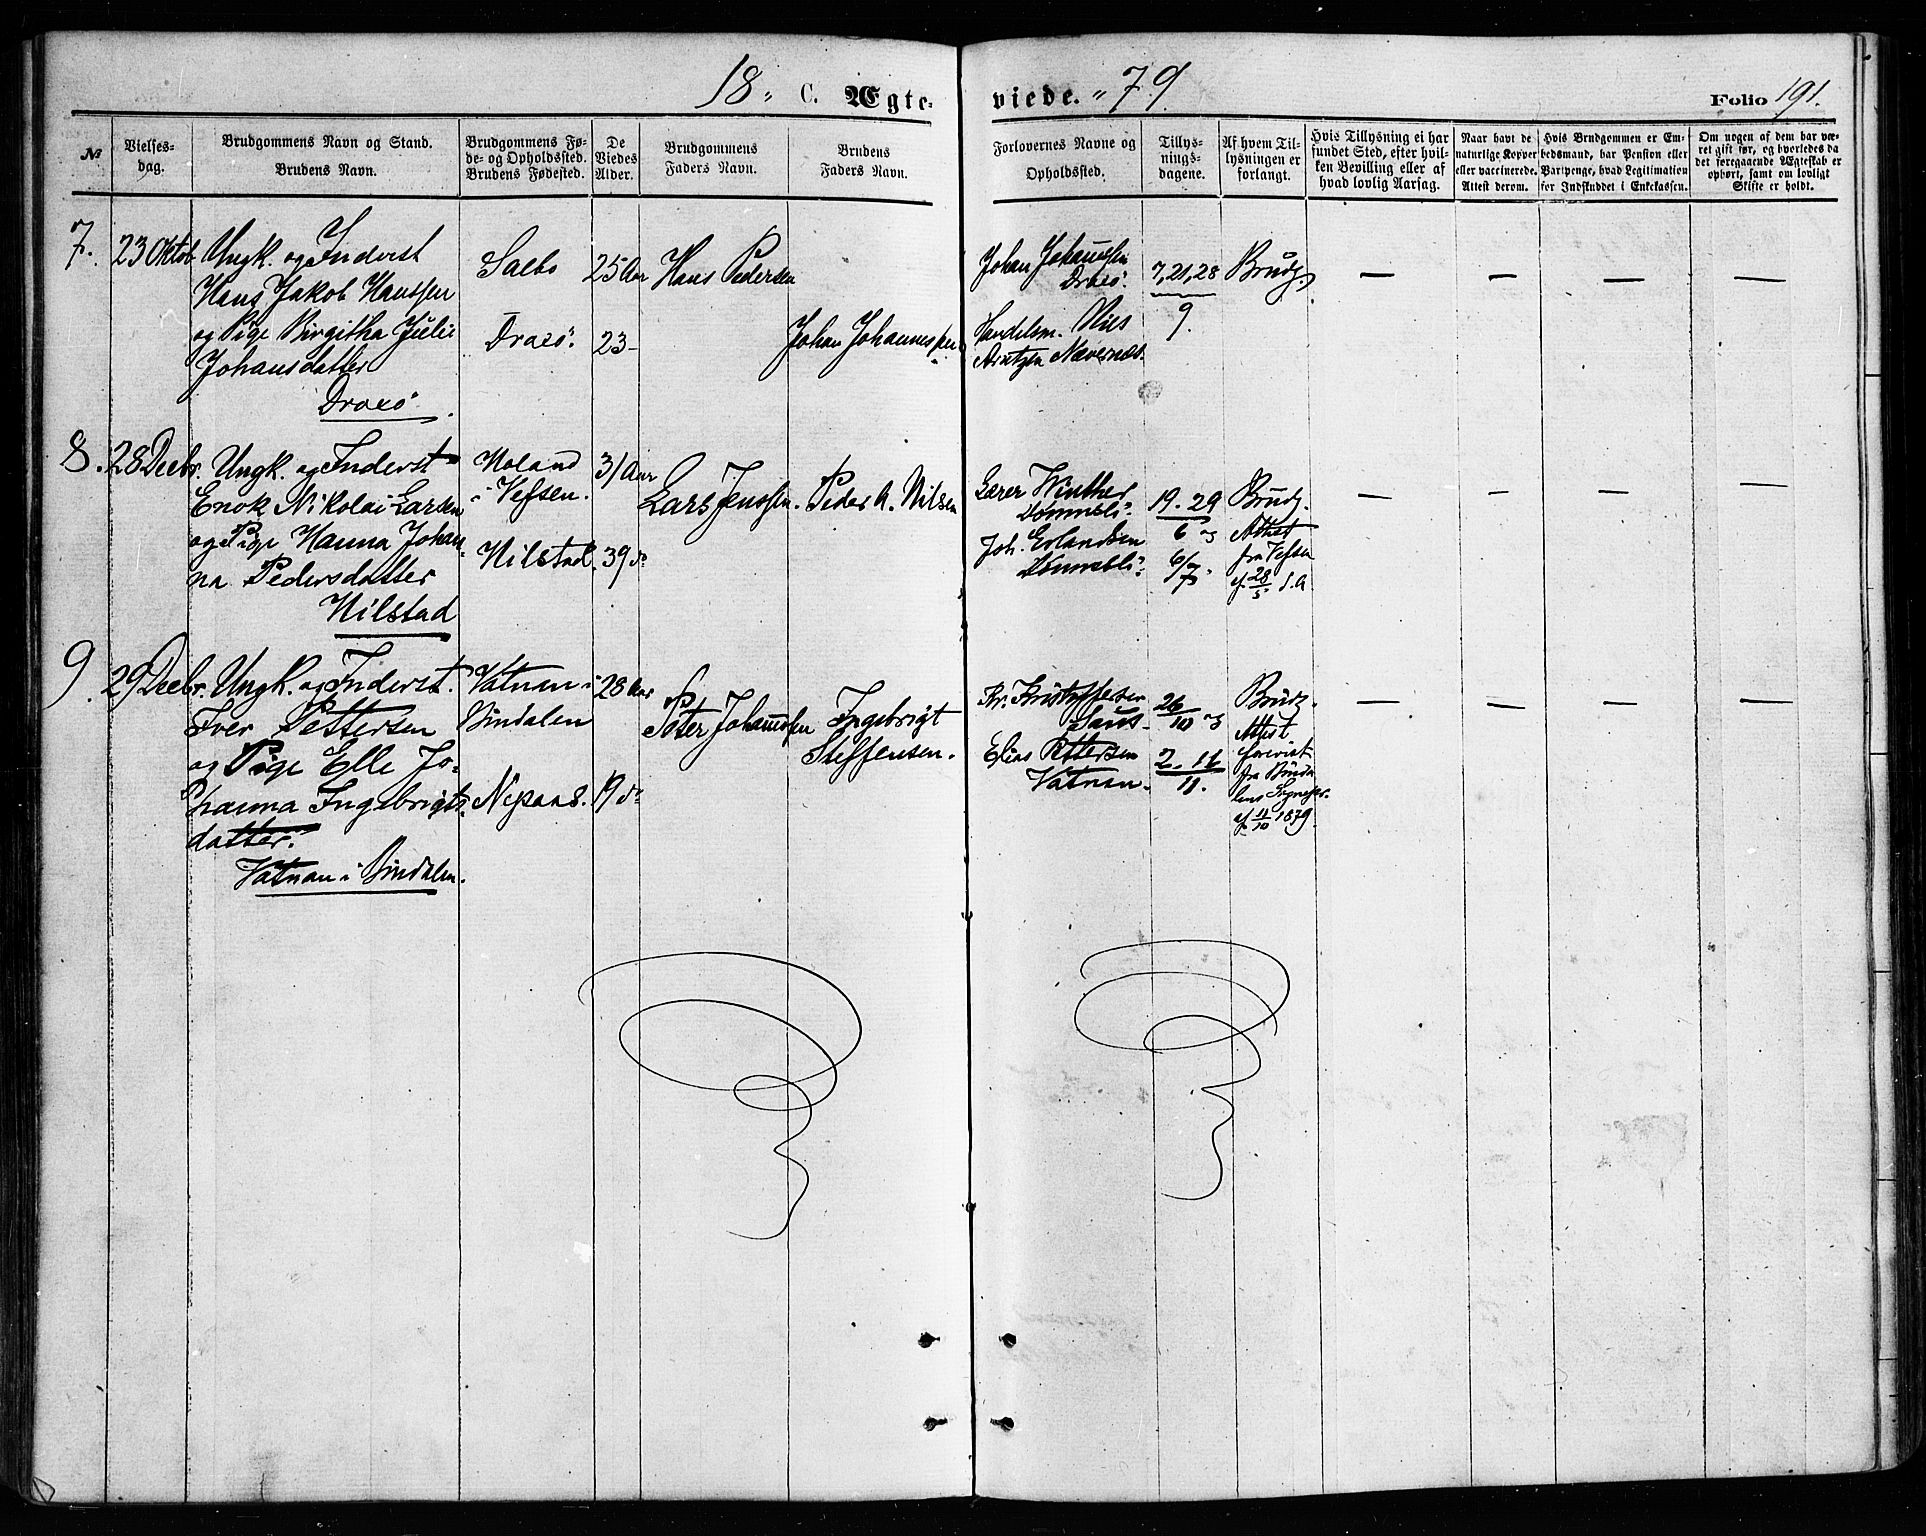 18 „ C. Ægte-
viede. „ 79
Folio 191.
№
Vielses-
dag.
Brudgommens Navn og Stand.
Brudens Navn.
Brudgommens Fø-
de- og Opholdssted.
Brudens Fødested.
De
Viedes
Alder.
Brudgommens
Faders Navn.
Brudens
Faders Navn.
Forlovernes Navne og
Opholdssted.
Tillys-
nings-
dagene.
Af hvem Til-
lysningen er
forlangt.
Hvis Tillysning ei har
fundet Sted, efter hvil-
ken Bevilling eller af
hvad lovlig Aarsag.
Naar havt de
naturlige Kopper
eller vaccinerede.
Attest derom.
Hvis Brudgommen er Em-
bedsmand, har Pension eller
Vartpenge, hvad Legitimation
for Indskuddet i Enkekassen.
Om nogen af dem har væ-
ret gift før, og hvorledes da
det foregaaende Ægteskab er
ophørt, samt om lovligt
Skifte er holdt.
7.
23 Oktob
Ungk. og Inderst
Hans Jakob Hanssen
og Pige Birgitha Julie
Johansdatter
Draeö.
Saebo
Draeö.
25 Aar
23 -
Hans Pedersen
Johan Johannessen
Johan Johanssen
Draeö.
Handelsm. Nils
Arntzen Nævernæs.
7, 21, 28
9.
Brudg.
— — — —
8.
28 Decbr.
Ungk. og Inderst
Enok Nikolai Larsen
og Pige Hanna Johan-
na Pedersdatter
Hilstad
Holand
i Vefsen.
Hilstad.
31 Aar
39 d°
Lars Jenssen.
Peder A. Nilsen
Lærer Winther
Joh. Erlandsen
19. 29
6 og
6/7.
Brudg.
Attest
fra Vefsen
af 28/5 d. A
— — — —
9.
29 Decbr.
Ungk. og Inderst.
Iver Pettersen
og Pige Elle Jo-
hanna Ingebrigts-
datter.
Vatnan i Bindalen.
Vatnan i
Bindalen
28 Aar
19 d°
Peter Johanssen
Ingebrigt
Steffensen.
Kr. Kristoffersen
Saus.
Elias Pettersen
Vatnan.
26
10 og
2. 16
11.
Brudg.
Attest
fra Binda
lens
af 11/10 1879.
— — — —